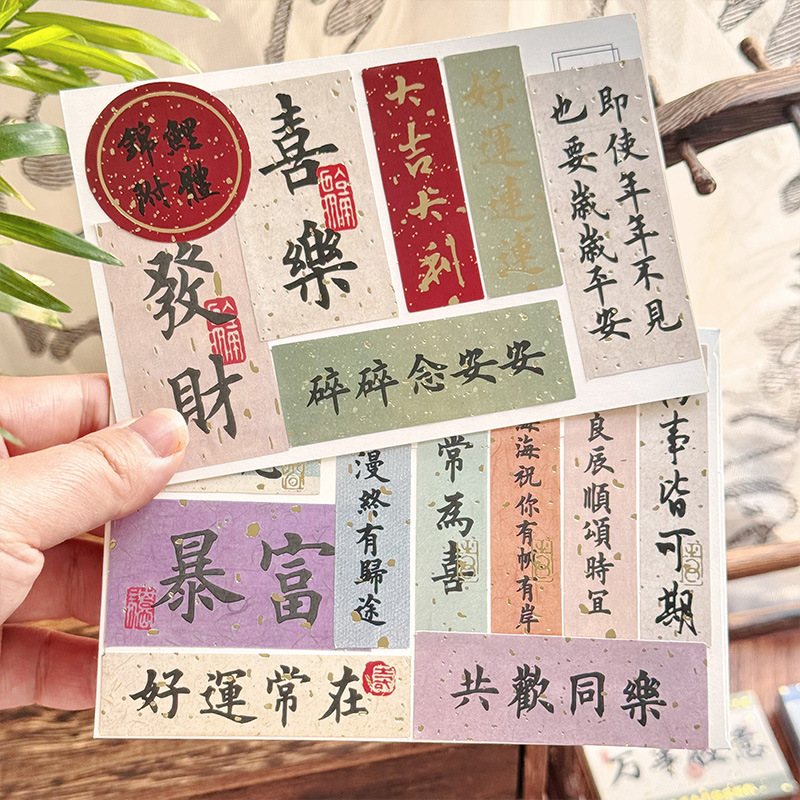 錦鯉
附體
喜樂
發財
大吉大利
好運連連
即使年年不見
也要歲歲平安
碎碎念安安
暴富
漫終有歸途
常為喜
海祝你有帆有岸
良辰順頌時宜
事皆可期
好運常在
共歡同樂